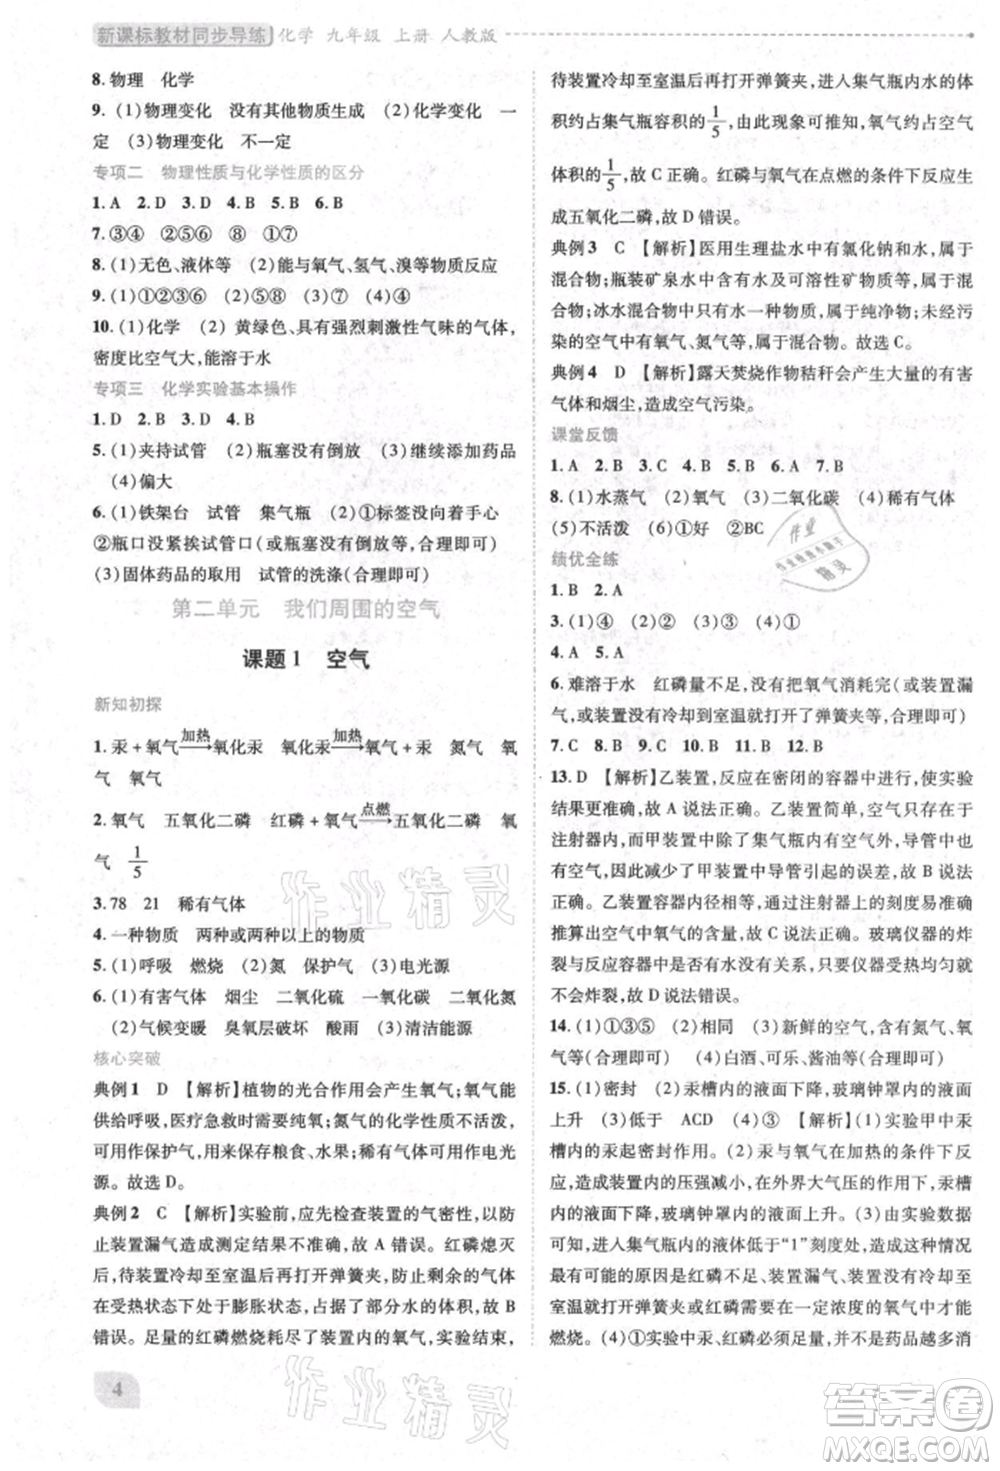 新课标教材同步导练 化学 九年级 上册 人教版
8.物理 化学
9.(1)物理变化 没有其他物质生成 (2)化学变化 一
定 (3)物理变化 不一定
专项二 物理性质与化学性质的区分
1.A 2.D 3.D 4.B 5.D 6.B
7.③④ ①②⑤⑥ ⑧ ⑦
8.(1)无色、液体等 (2)能与氧气、氢气、溴等物质反应
9.(1)①②③ (2)①②③ (3)①② (4)④
10.(1)化学 (2)黄绿色、具有强烈刺激性气味的气体,
密度比空气大,能溶于水
专项三 化学实验基本操作
1.D 2.B 3.D 4.B
5.(1)夹持试管 (2)瓶塞没有倒放 (3)继续振荡
(4)偏大
6.(1)铁架台 试管 集气瓶 (2)①标签没向着手心
②瓶口没紧挨试管口(或瓶塞没有倒放)(合理即可)
(3)固体药品的取用 试管的洗涤(合理即可)
第二单元 我们周围的空气
课题1 空气
新知初探
1.汞+氧气 加热→ 氧化汞 氧化汞 加热→ 汞+氧气 氮气 氧
气 氧气
2.氧气 五氧化二磷 红磷+氧气 点燃→ 五氧化二磷 氧
气 1/5
3.78 21 稀有气体
4.一种物质 两种或两种以上的物质
5.(1)呼吸 燃烧 (2)氮 保护气 (3)电光源
6.(1)有害气体 烟尘 二氧化硫 一氧化碳 二氧化氮
(2)气候变暖 臭氧层破坏 酸雨 (3)清洁能源
核心突破
典例1 D 【解析】植物的光合作用会产生氧气;氧气能
供给呼吸,医疗急救时需纯氧;氮气的化学性质不活泼,
可作保护气,用来保存粮食、水果;稀有气体可作电光源。
故选D。
典例2 C 【解析】实验前,应先检查装置的气密性,以
防止装置漏气造成测定结果不准,故 A 错误。红磷熄灭
后,待装置冷却至室温后再打开弹簧夹,防止剩余的气体
在受热状态下处于膨胀状态,占据了部分水的体积,故 B
错误。足量的红磷燃烧消耗了装置内的氧气,实验结束,
4
待装置冷却至室温后再打开弹簧夹,进入集气瓶内水的体
积约占集气瓶容积的1/5,由此现象可推知,氧气约占空气
体积的1/5,故 C 正确。红磷与氧气在点燃的条件下反应生
成五氧化二磷,故 D 错误。
典例3 C 【解析】医用生理盐水中有氯化钠和水,属于
混合物;瓶装矿泉水中有水及可溶性矿物质,属于混合
物;冰水混合物中只有水一种物质,属于纯净物;未经污
染的空气中有氧气、氮气等,属于混合物。故选 C。
典例4 D 【解析】露天焚烧作物秸秆会产生大量的有害
气体和烟尘,造成空气污染。
课堂反馈
1.A 2.B 3.C 4.B 5.A 6.D 7.B
8.(1)水蒸气 (2)氧气 (3)二氧化碳 (4)稀有气体
(5)不活泼 (6)①好 ②BC
绩优全练
1.B 2.B
3.(1)④ (2)③ (3)② (4)①
4.A 5.A
6.难溶于水 红磷量不足,没有把氧气消耗完(或装置漏
气,或没有冷却到室温就打开了弹簧夹等,合理即可)
7.C 8.B 9.D 10.B 11.B 12.B
13.D 【解析】乙装置,反应在密闭的容器中进行,使实验
结果更准确,故 A 说法正确。乙装置简单,空气只存在于
注射器内,而甲装置中除了集气瓶内有空气外,导管中也
有空气,减少了甲装置中导管引起的误差,故 B 说法正
确。最终我们可以通过注射器上的刻度易于准确观察并
推算出空气中氧气的含量,故 C 说法正确。玻璃仪器的炸
裂与反应容器中是否有水无关,只要仪器受热均匀就
不会炸裂,故 D 说法错误。
14.(1)①③⑤ (2)相同 (3)新鲜的空气,含有氮气、氧
气等(合理即可) (4)白酒、可乐、酱油等(合理即可)
15.(1)密封 (2)汞槽内的液面下降,玻璃钟罩内的液面
上升 (3)低于 ACD (4)③ 【解析】(1)实验甲中汞
槽内的汞起密封作用。(2)汞与氧气在加热的条件下能
反应,造成装置内的压强减小,在大气压的作用下,汞槽
内的液面下降,玻璃钟罩内的液面上升。(3)根据实验数据
可知,进入集气瓶内的液体低于“1”刻度处,造成这种情况
的原因可能是红磷不足、装置漏气、装置未冷却至
室温就打开弹簧夹或红磷需要在一定浓度的氧气中才能
燃烧。(4)①实验中汞、红磷必须足量,以尽可能地多消
作业精灵
作业精灵
答案圈
MXQE.COM